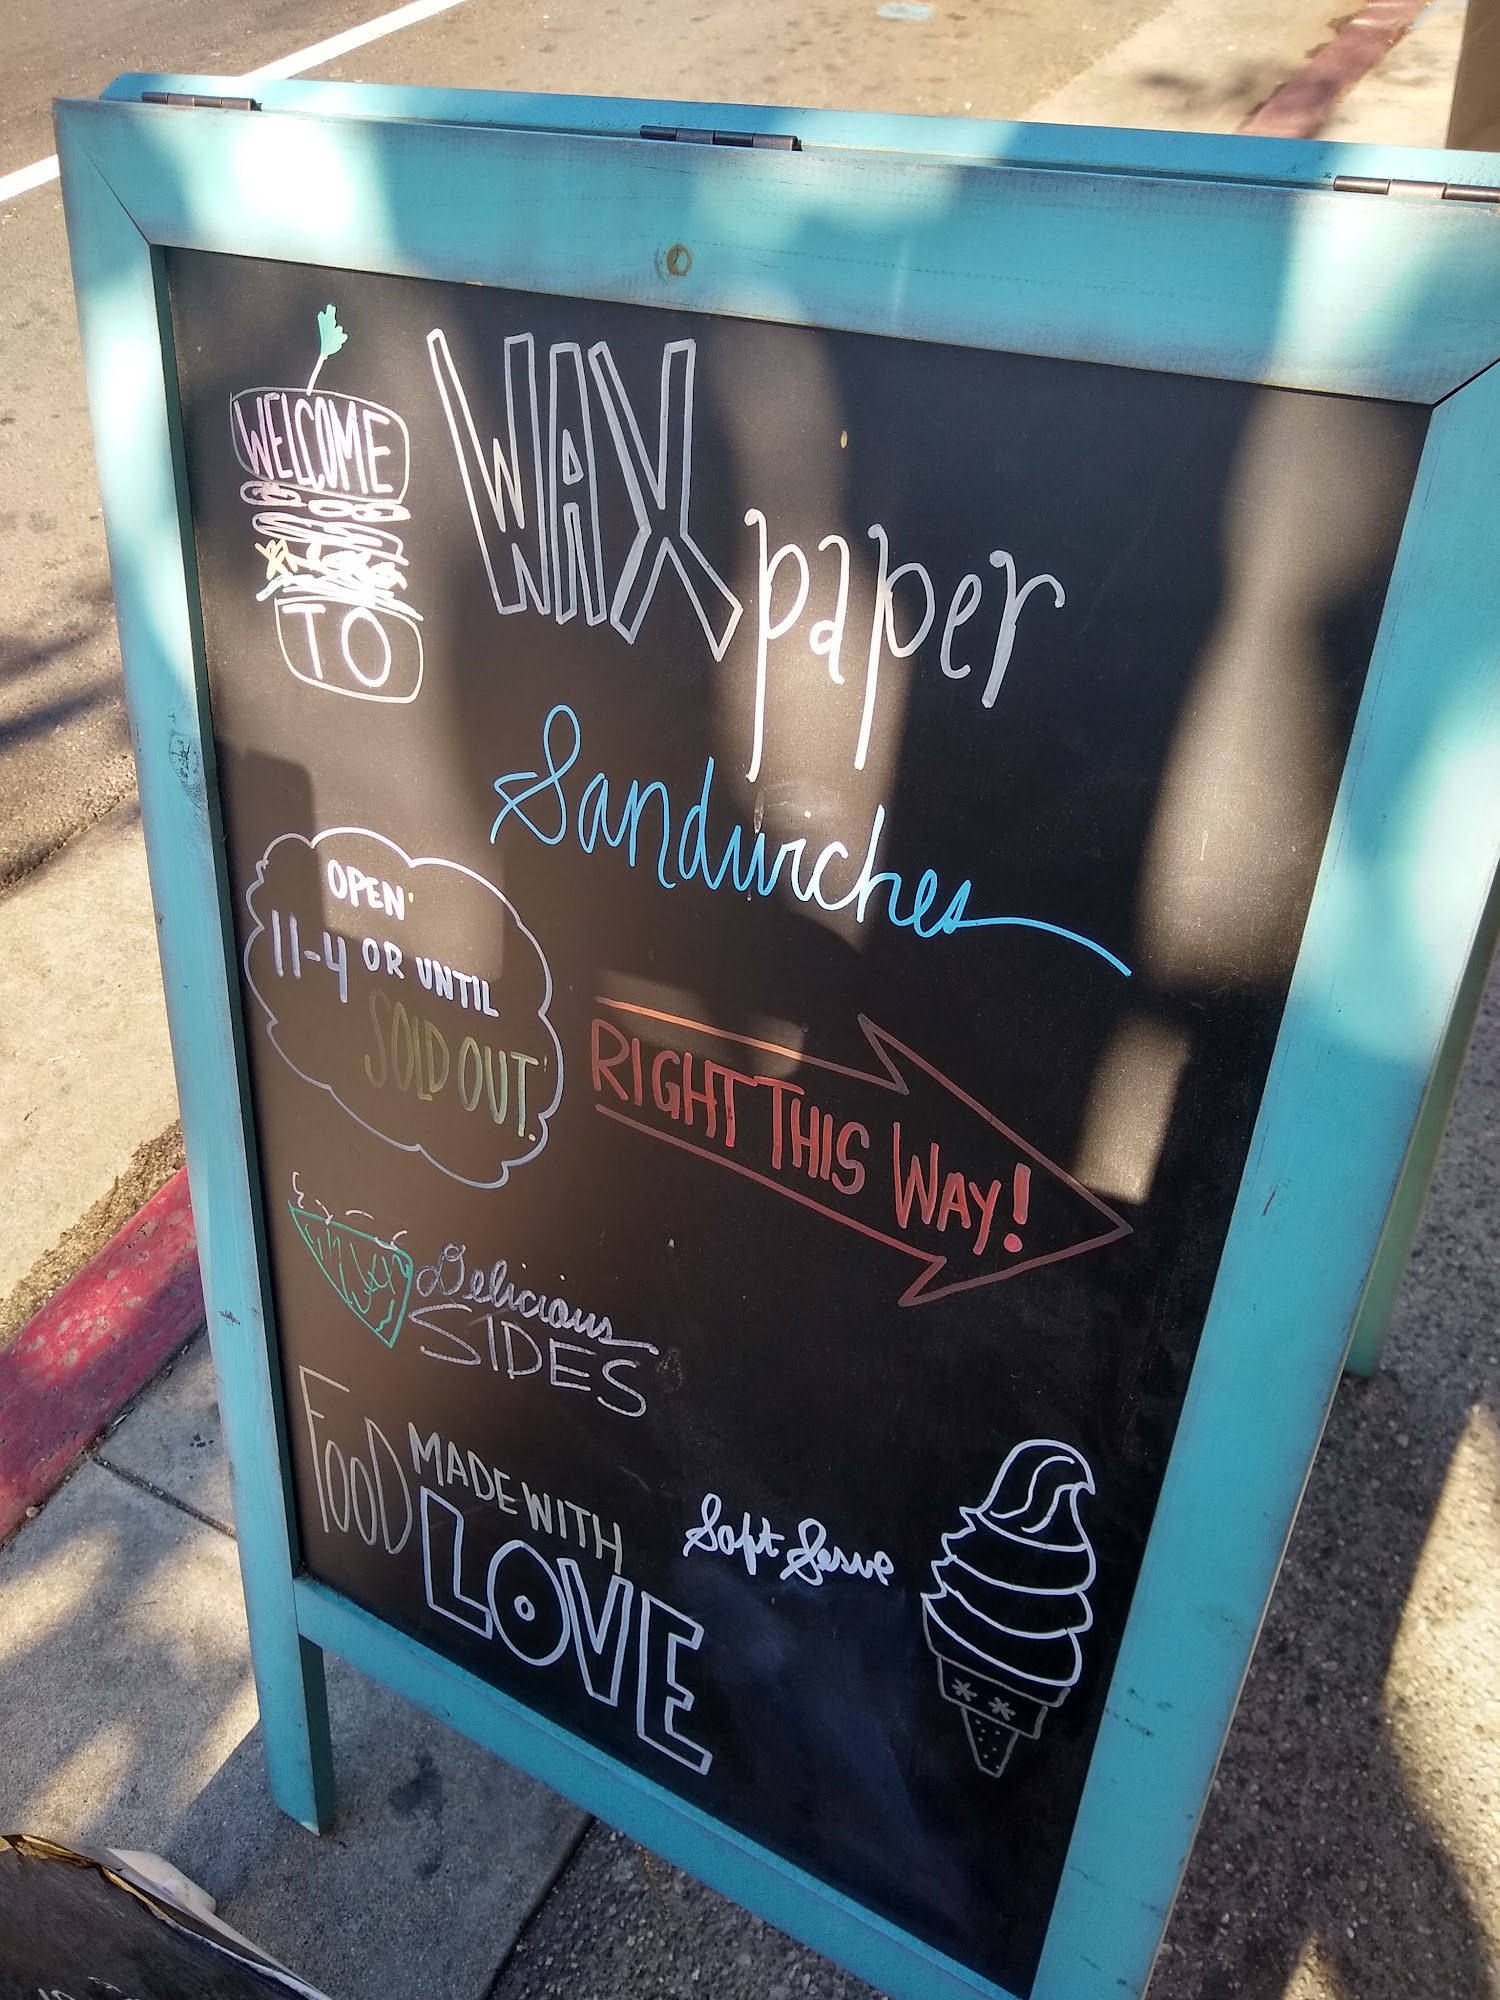 WELCOME
TO
WAX paper
Sandwiches
OPEN
11-4 OR UNTIL
SOLD OUT.
RIGHT THIS WAY!
Delicious
SIDES
FOOD MADE WITH
LOVE
Soft Serve